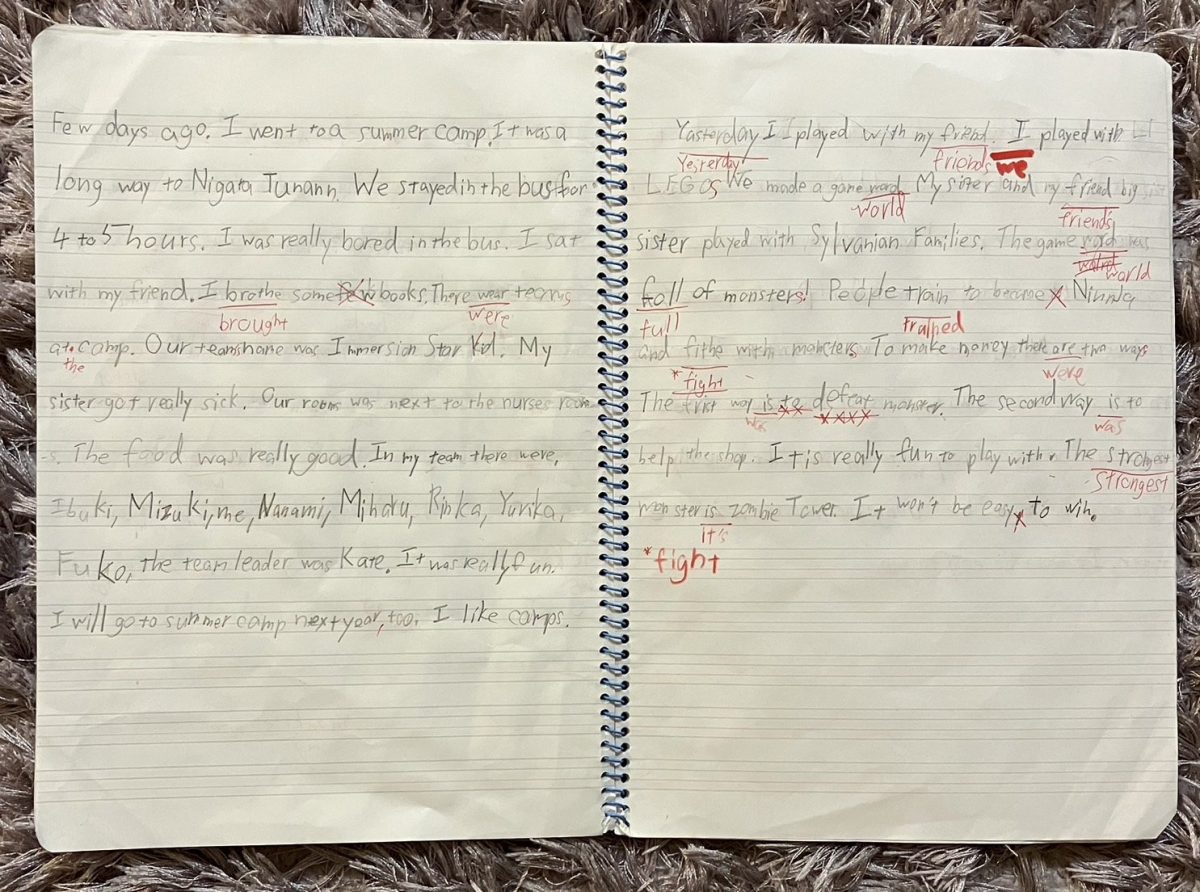 Few days ago. I went to a summer camp. It was a
long way to Nigata Junann. We stayed in the bus for
4 to 5 hours. I was really bored in the bus. I sat
with my friend. I brothe some books. There wear teams
brought were
at camp. Our teamshane was Immersion Star Kid. My
the
sister got really sick. Our room was next to the nurses room
s. The food was really good. In my team there were,
Ibuki, Mizuki, me, Nanami, Miharu, Rinka, Yurika,
Fuko, the team leader was Kate. It was really fun.
I will go to summer camp next year, too. I like camps.
Yasterday I I played with my friend. I played with
Yesterday friends we
LEGOs We made a game word My sister and my friend big
world friends
sister played with Sylvanian Families. The game word was
world
foll of monsters! People train to become Ninnja
full trained
and fithe with moncters To make money there are two ways
*fight were
The frist way is to defeat monster. The second way is to
was was
help the shop. It is really fun to play with. The strongest
strongest
monster is zombie Tower It won't be easy to win.
it's
*fight